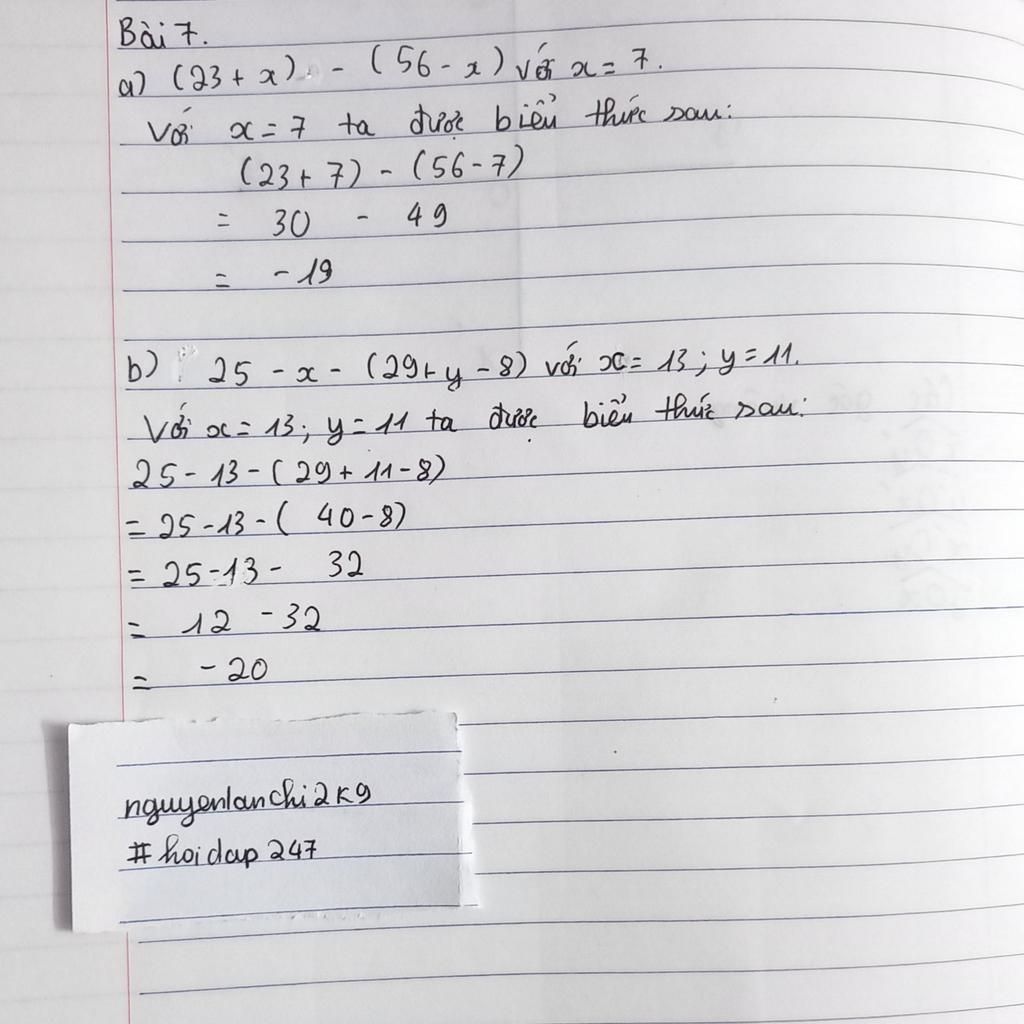 Bài 7.
a) (23 + x) - (56 - x) với x = 7.
Với x = 7 ta được biểu thức sau:
(23 + 7) - (56 - 7)
= 30 - 49
= -19
b) 25 - x - (29 + y - 8) với x = 13; y = 11.
Với x = 13; y = 11 ta được biểu thức sau:
25 - 13 - (29 + 11 - 8)
= 25 - 13 - ( 40 - 8)
= 25 - 13 - 32
= 12 - 32
= -20
nguyenlanchi2k9
# hoidap 247